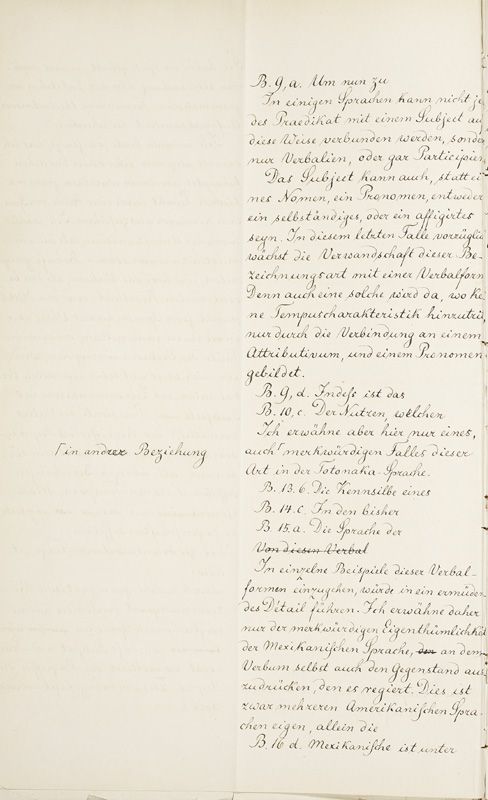 B. 9, a. Um nun zu
In einigen Sprachen kann nicht je
des Praedikat mit einem Subject au
diese Weise verbunden werden, sonde
nur Verbalien, oder gar Participien
Das Subject kann auch, statt ei
nes Nomen, ein Pronomen, entweder
ein selbständiges, oder ein affigirtes
seyn. In diesem letzten Falle vorzügli
wächst die Verwandschaft dieser Be-
zeichnungsart mit einer Verbalform
Denn auch eine solche wird da, wo kei
ne Tempuscharakteristik hinzutrit,
nur durch die Verbindung an einem
Attributivum, und einem Pronomen
gebildet.
B. 9, d. Indess ist das
B. 10, c. Der Nutzen, welchen
Ich erwähne aber hier nur eines,
auch⌈ merkwürdigen Falles dieser
⌈in andrer Beziehung
Art in der Totonaka-Sprache.
B. 13. b. Die Kennsilbe eines
B. 14. c. In den bisher
B. 15. a. Die Sprache der
Von diesen Verbal
In einzelne Beispiele dieser Verbal-
formen einzugehen, würde in ein ermüden
des Détail führen. Ich erwähne daher
nur der merkwürdigen Eigenthümlichkeit
der Mexikanischen Sprache, den an dem
Verbum selbst auch den Gegenstand aus
zudrücken, den es regiert. Dies ist
zwar mehreren Amerikanischen Spra-
chen eigen, allein die
B. 16 d. Mexikanische ist unter